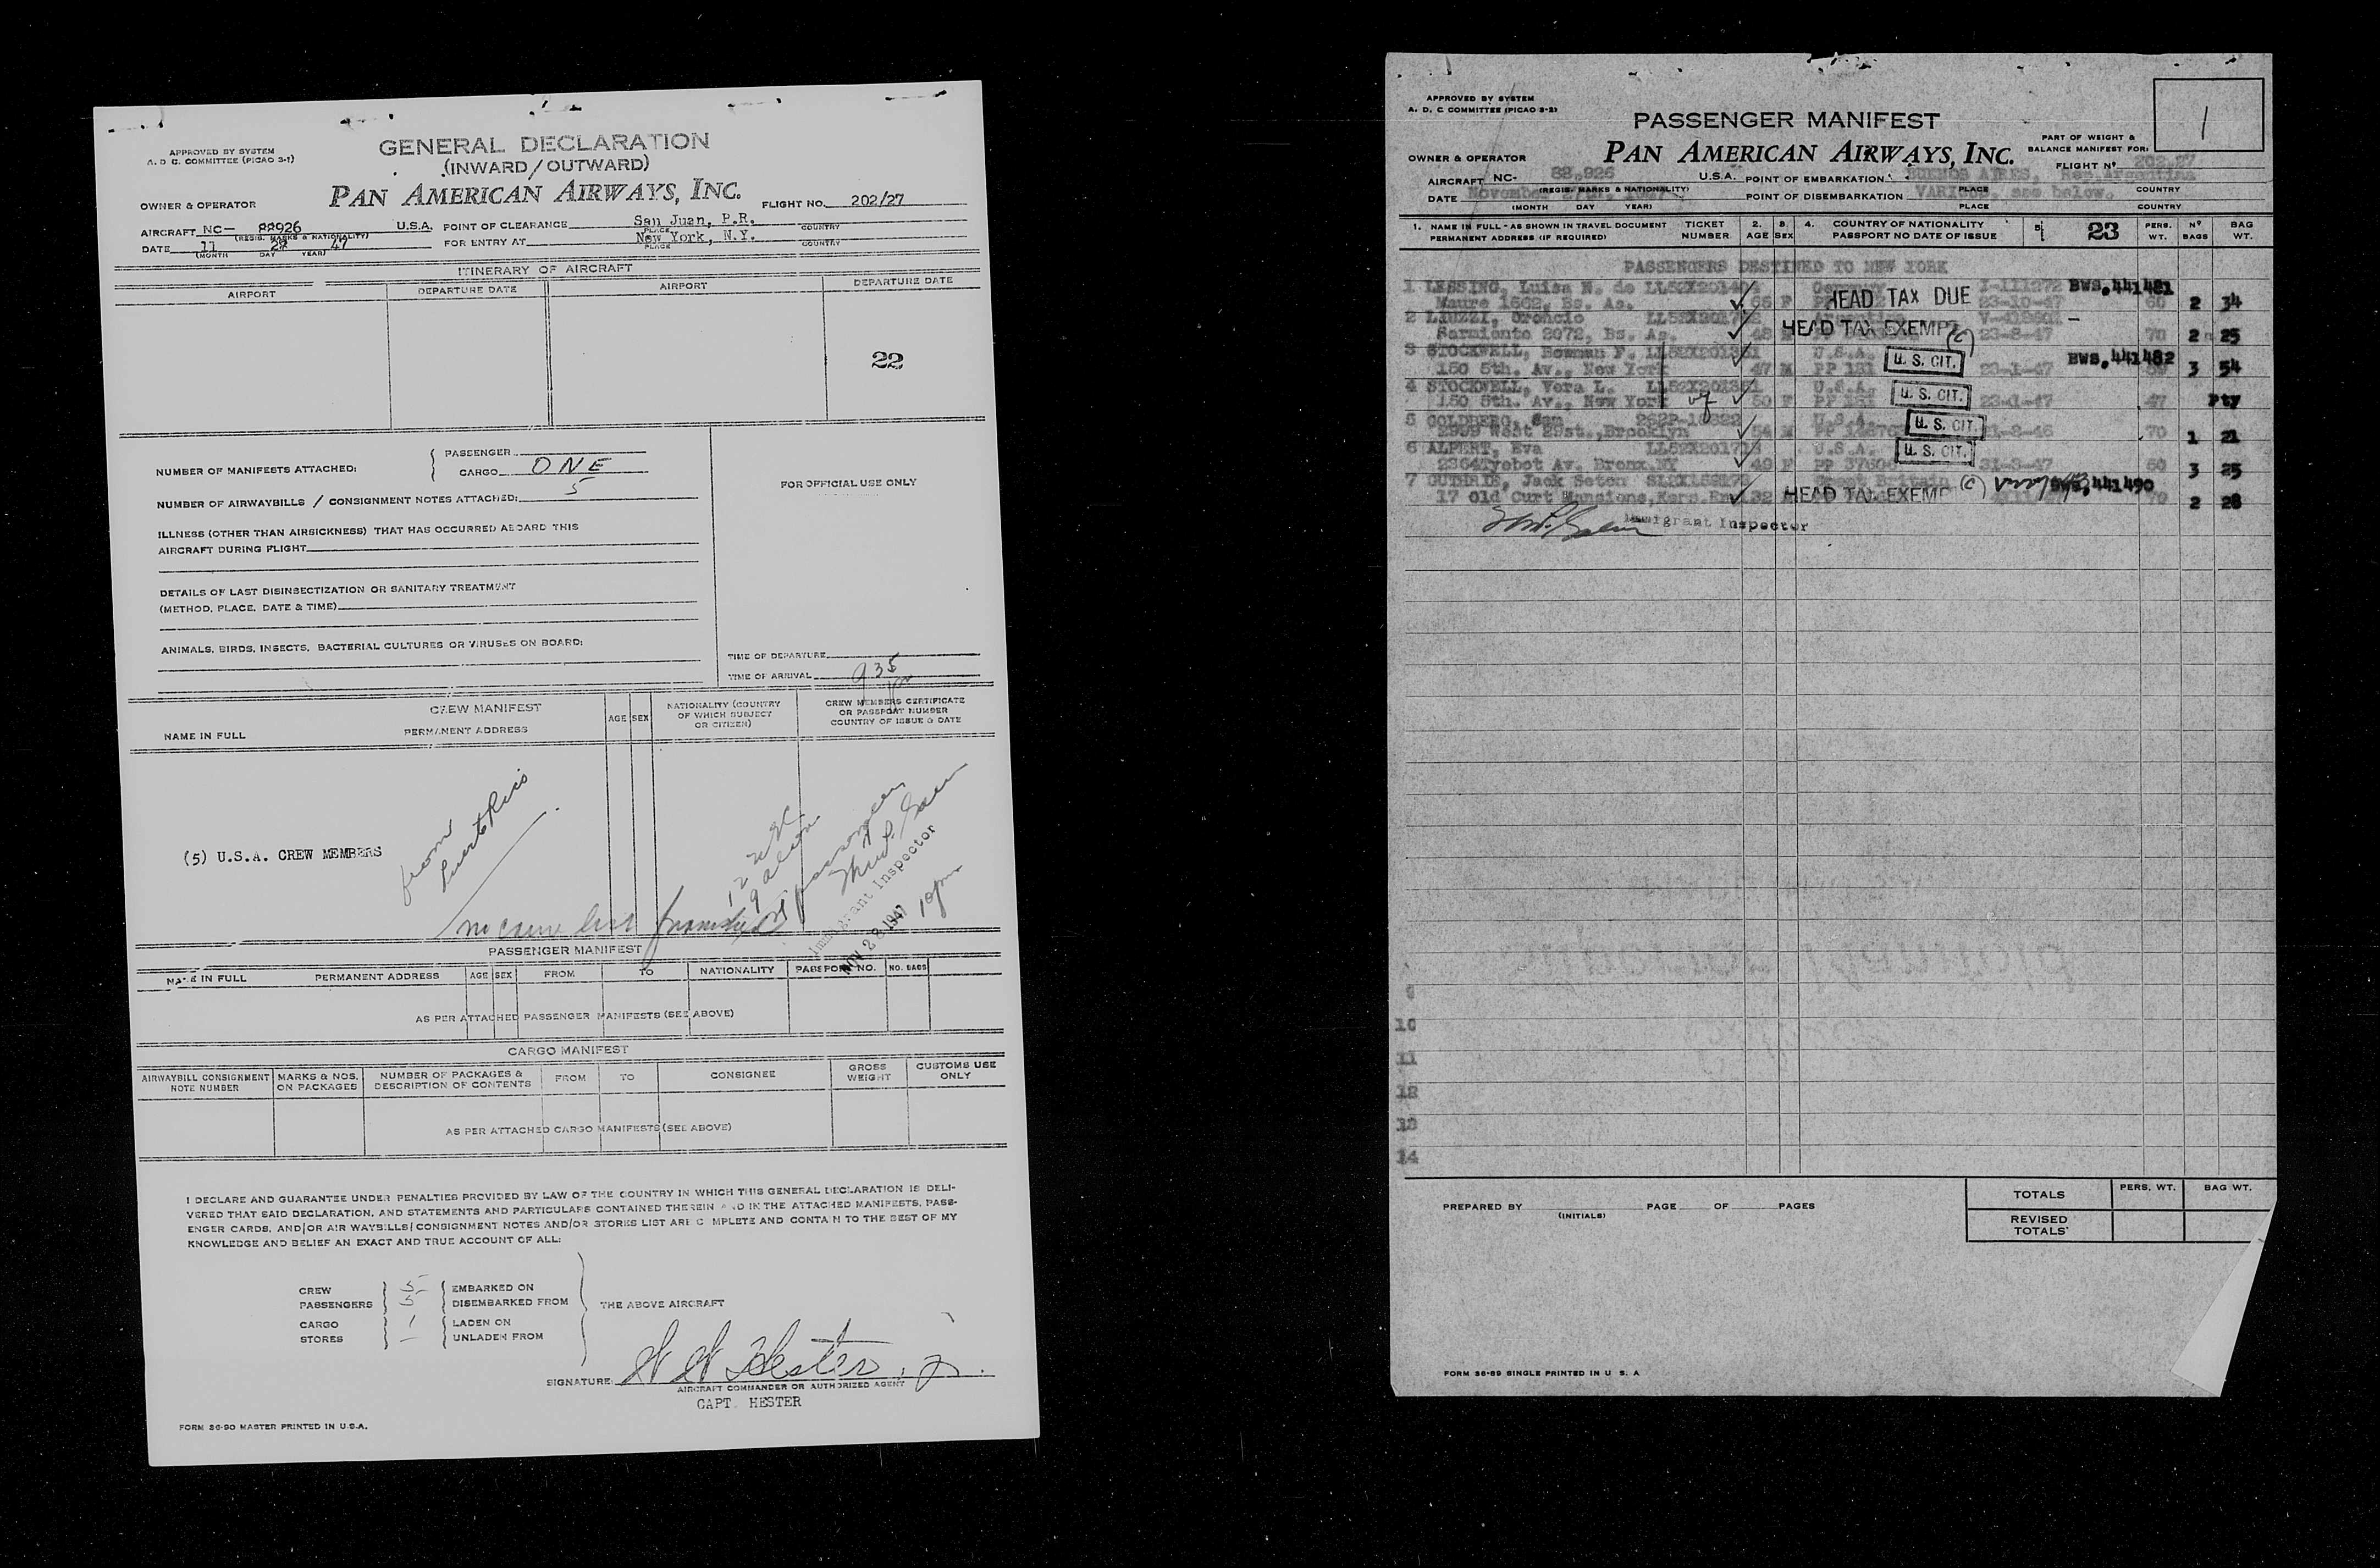 APPROVED BY SYSTEM
A. D. C. COMMITTEE (PICAO 3-1)
GENERAL DECLARATION
(INWARD/OUTWARD)
PAN AMERICAN AIRWAYS, INC.
OWNER & OPERATOR
FLIGHT NO. 202/27
AIRCRAFT NC- 88926 U.S.A. POINT OF CLEARANCE San Juan, P.R.
(REGIS. MARKS & NATIONALITY) PLACE COUNTRY
DATE 11 28 47 FOR ENTRY AT New York, N.Y.
(MONTH DAY YEAR) PLACE COUNTRY
ITINERARY OF AIRCRAFT
AIRPORT DEPARTURE DATE AIRPORT DEPARTURE DATE
22
NUMBER OF MANIFESTS ATTACHED: PASSENGER
CARGO ONE
NUMBER OF AIRWAYBILLS / CONSIGNMENT NOTES ATTACHED: 5
FOR OFFICIAL USE ONLY
ILLNESS (OTHER THAN AIRSICKNESS) THAT HAS OCCURRED ABOARD THIS
AIRCRAFT DURING FLIGHT
DETAILS OF LAST DISINSECTIZATION OR SANITARY TREATMENT
(METHOD, PLACE, DATE & TIME)
ANIMALS, BIRDS, INSECTS, BACTERIAL CULTURES OR VIRUSES ON BOARD:
TIME OF DEPARTURE
TIME OF ARRIVAL 935 pm
CREW MANIFEST
NAME IN FULL PERMANENT ADDRESS AGE SEX
NATIONALITY (COUNTRY OF WHICH SUBJECT OR CITIZEN)
CREW MEMBERS CERTIFICATE OR PASSPORT NUMBER COUNTRY OF ISSUE & DATE
from
Puerto Rico
(5) U.S.A. CREW MEMBERS
12 usc
9 alien
passengers
Immigrant Inspector
NOV 28 1947
10pm
no crew list
PASSENGER MANIFEST
NAME IN FULL PERMANENT ADDRESS AGE SEX FROM TO NATIONALITY PASSPORT NO. NO. BAGS
AS PER ATTACHED PASSENGER MANIFESTS (SEE ABOVE)
CARGO MANIFEST
AIRWAYBILL CONSIGNMENT NOTE NUMBER MARKS & NOS. ON PACKAGES NUMBER OF PACKAGES & DESCRIPTION OF CONTENTS FROM TO CONSIGNEE GROSS WEIGHT CUSTOMS USE ONLY
AS PER ATTACHED CARGO MANIFESTS (SEE ABOVE)
I DECLARE AND GUARANTEE UNDER PENALTIES PROVIDED BY LAW OF THE COUNTRY IN WHICH THIS GENERAL DECLARATION IS DELI-
VERED THAT SAID DECLARATION, AND STATEMENTS AND PARTICULARS CONTAINED THEREIN AND IN THE ATTACHED MANIFESTS, PASS-
ENGER CARDS, AND/OR AIR WAYBILLS/CONSIGNMENT NOTES AND/OR STORES LIST ARE COMPLETE AND CONTAIN TO THE BEST OF MY
KNOWLEDGE AND BELIEF AN EXACT AND TRUE ACCOUNT OF ALL:
CREW 5 EMBARKED ON
PASSENGERS 5 DISEMBARKED FROM THE ABOVE AIRCRAFT
CARGO 1 LADEN ON
STORES — UNLADEN FROM
SIGNATURE: W W Hester, Jr.
AIRCRAFT COMMANDER OR AUTHORIZED AGENT
CAPT. HESTER
FORM 36-90 MASTER PRINTED IN U.S.A.
APPROVED BY SYSTEM
A. D. C. COMMITTEE (PICAO 3-2)
PASSENGER MANIFEST
PAN AMERICAN AIRWAYS, INC.
1
PART OF WEIGHT &
BALANCE MANIFEST FOR:
OWNER & OPERATOR
FLIGHT Nº 202.27
AIRCRAFT NC- 88,926 U.S.A. POINT OF EMBARKATION BUENOS AIRES, Rep. Argentina
(REGIS. MARKS & NATIONALITY) PLACE COUNTRY
DATE November POINT OF DISEMBARKATION VARIOUS see below.
(MONTH DAY YEAR) PLACE COUNTRY
1. NAME IN FULL - AS SHOWN IN TRAVEL DOCUMENT TICKET NUMBER 2. AGE 3. SEX 4. COUNTRY OF NATIONALITY 5. 23 PERS. WT. Nº BAGS BAG WT.
PERMANENT ADDRESS (IF REQUIRED) PASSPORT NO DATE OF ISSUE
PASSENGERS DESTINED TO NEW YORK
1 LESSING, Luisa N. de Germany I-111272 BWS.441481
Maure 1602, Bs. As. 66 F HEAD TAX DUE 23-10-47 60 2 34
2 LIUZZI, Oroncio
Sarmiento 2072, Bs. As. 48 HEAD TAX EXEMPT (2) 23-8-47 70 2 25
3 STOCKWELL, Bowman F. U.S.A. U.S. CIT. BWS.441482
150 5th. Av., New York 47 M PP 131 3 54
4 STOCKWELL, Vera L. U.S.A. U.S. CIT.
150 5th. Av., New York 50 F 23-1-47 47 Pty
5 GOLDBERG, Sam U.S.A. U.S. CIT.
West 29st., Brooklyn 54 M 70 1 21
6 ALPERT, Eva U.S.A. U.S. CIT.
Av. Bronx. NY 49 F 60 3 25
7 GUTHRIE, Jack Seton Great Britain BWS.441490
17 Old Curt Mansions, Kens. 32 HEAD TAX EXEMP 70 2 28
Immigrant Inspector
9
10
11
12
13
14
PREPARED BY PAGE OF PAGES
(INITIALS)
TOTALS PERS. WT. BAG WT.
REVISED TOTALS
FORM 36-89 SINGLE PRINTED IN U. S. A